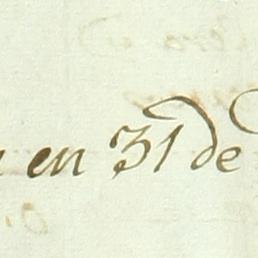 en 31 de